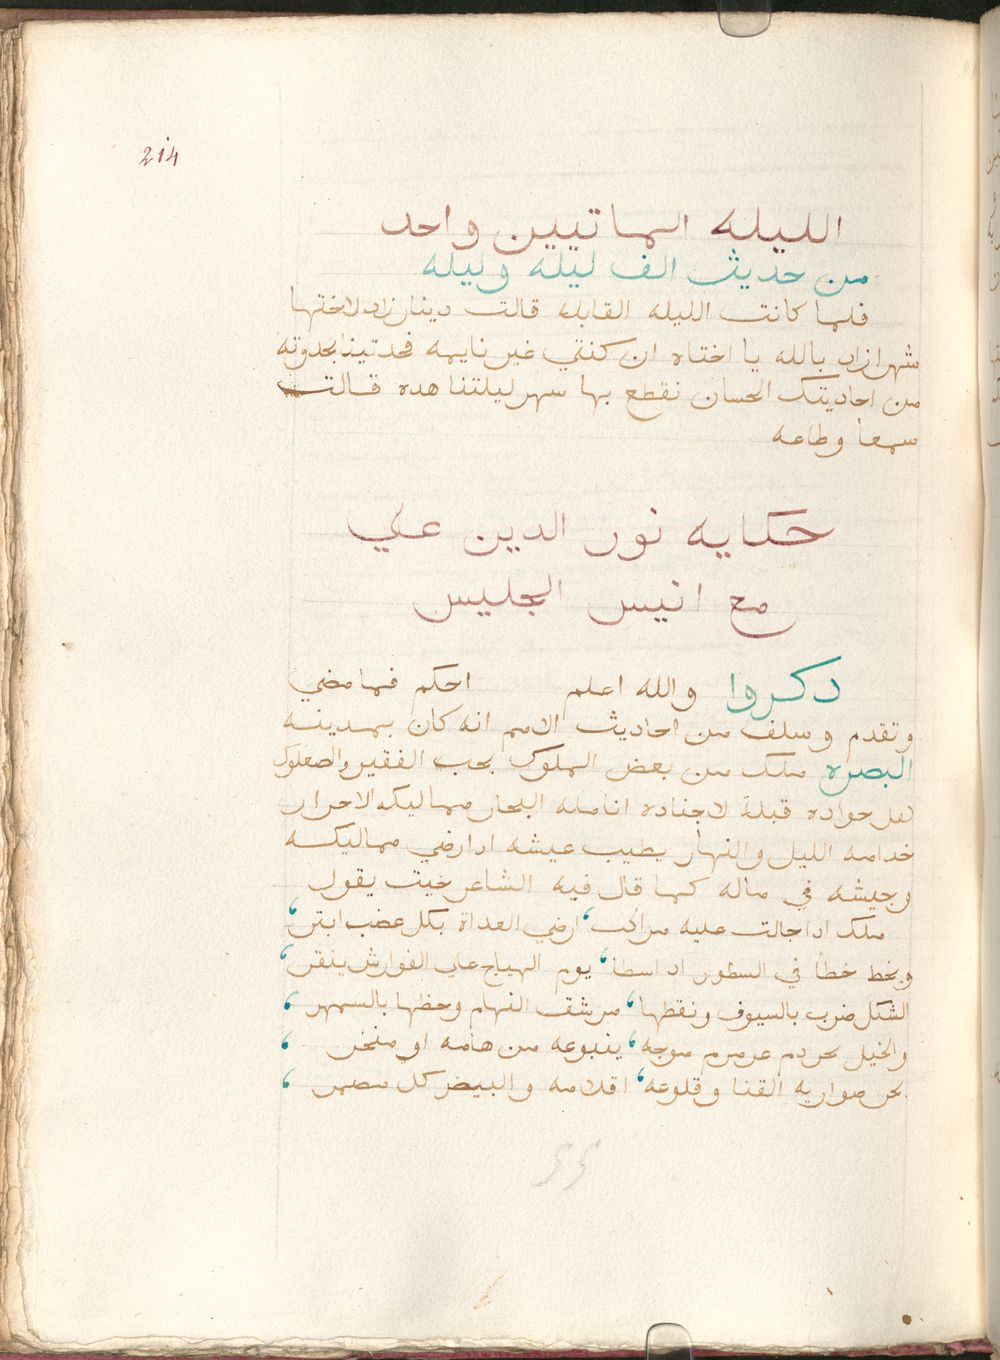 214
الليله الماتيين واحد
من حديث الف ليله وليله
فلما كانت الليله القابله قالت دينارزاد لاختها
شهرازاد بالله يا اختاه ان كنتي غير نايمه فحدتينا بحدوته
من احاديتك الحسان نقطع بها سهر ليلتنا هده قالت
سمعا وطاعه
حكايه نور الدين علي
مع انيس الجليس
دكروا والله اعلم احكم فما مضي
وتقدم وسلف من احاديث الامم انه كان بمدينه
البصره ملك من بعض الملوك يحب الفقير والصعلوك
جواده قبلة لاجناده انامله البحار مماليكه الاحرار
خدامه الليل والنهار يطيب عيشه ادا رضي مماليكه
وجيشه في ماله كما قال فيه الشاعر حيت يقول
ملك ادا جالت عليه مراكب، ارضي العداة بكل عضب ابتر،
ويخط خطا في السطور اد اسطا، يوم الهياج علي الفوارش ينقر،
الشكل ضرب بالسيوف ونقطها، من شقف النهام وحظها بالسمهر،
والخيل بحر دم عرمرم موجه، ينبوعه من هامه او منخر،
بحر صواريه القنا وقلوعه، اقلامه والبيض كل مضمر،